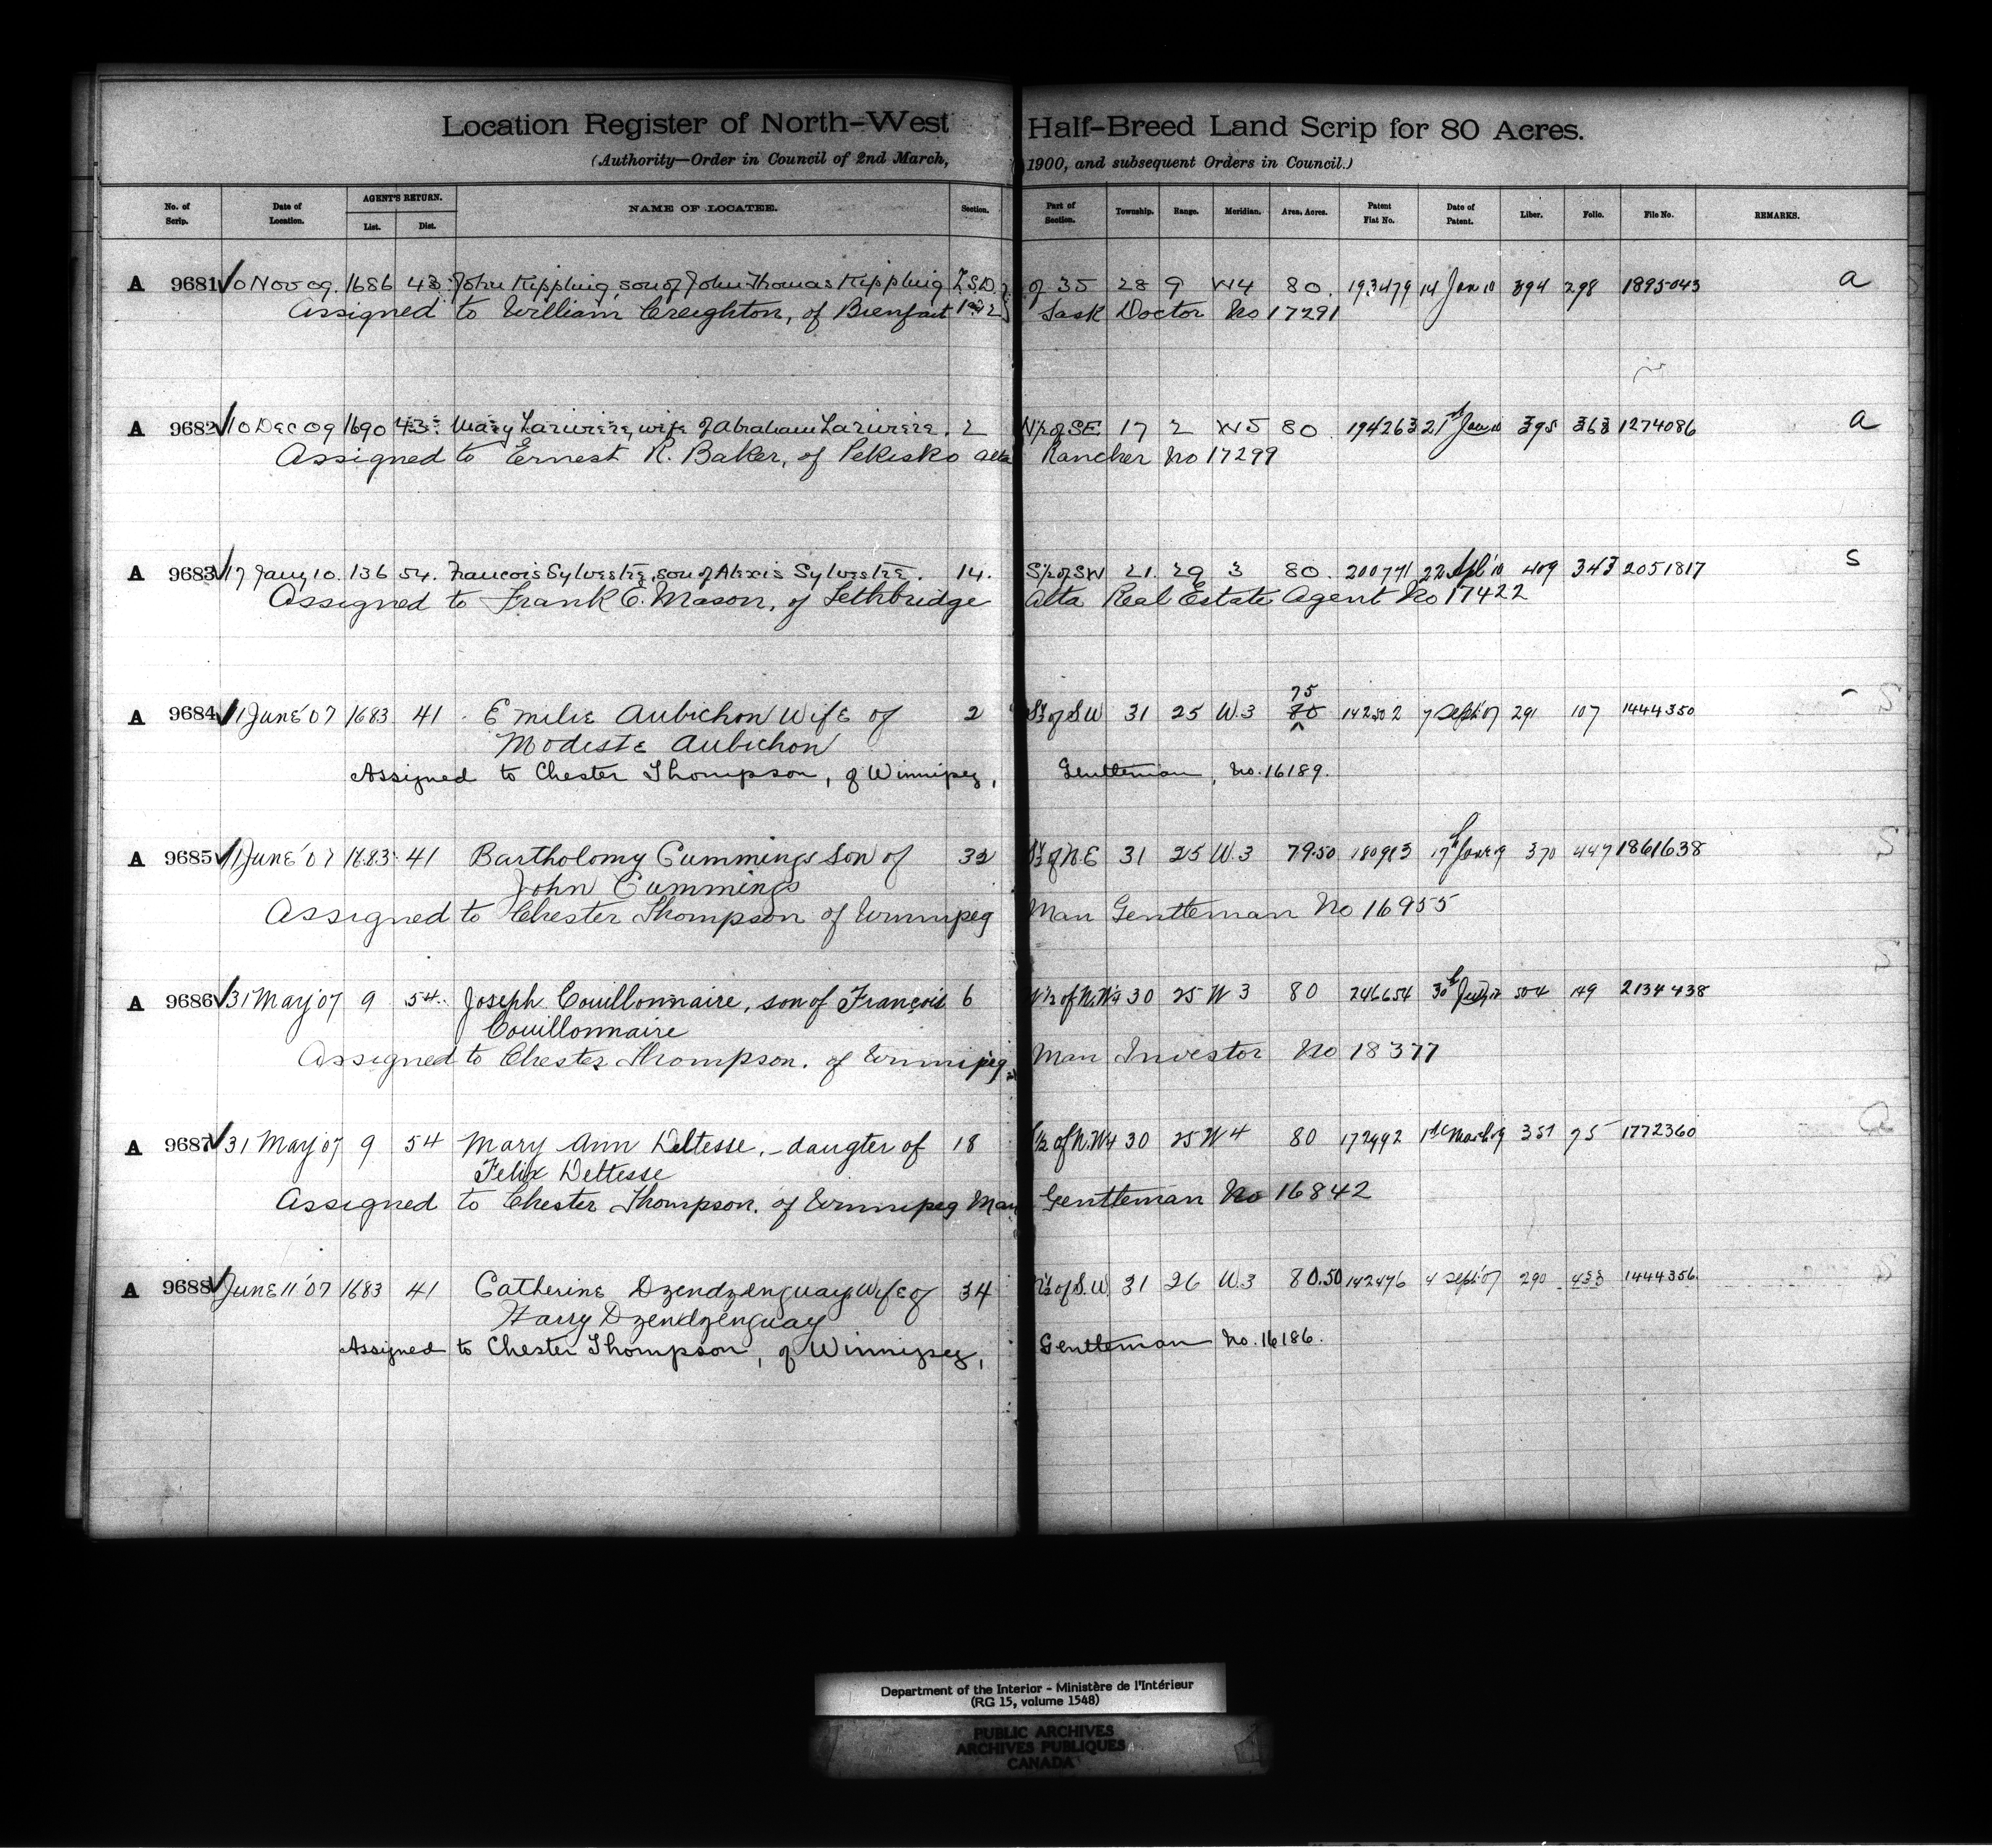 Location Register of North-West Half-Breed Land Scrip for 80 Acres.
(Authority—Order in Council of 2nd March, 1900, and subsequent Orders in Council.)
No. of Scrip. Date of Location. AGENT'S RETURN. List. Dist. NAME OF LOCATEE. Section. Part of Section. Township. Range. Meridian. Area, Acres. Patent Fiat No. Date of Patent. Liber. Folio. File No. REMARKS.
A 9681 10 Nov 09. 1686 43 John Kippling, son of John Thomas Kippling L.S.D. of 35 28 9 W4 80. 193479 14 Jan 10 394 298 1895043 a
Assigned to William Creighton, of Bienfait 1 & 2 Sask Doctor No 17291
A 9682 10 Dec 09 1690 43 Mary Lariviere, wife of Abraham Lariviere. 2 N½ of SE 17 2 W5 80. 194263 21st Jan 10 395 363 1274086 a
Assigned to Ernest R. Baker, of Pekisko Alta Rancher No 17299
A 9683 17 Jany 10. 136 54. Francois Sylvestre, son of Alexis Sylvestre. 14. S½ of SW 21. 29 3 80. 200771 22 Apl 10 409 343 2051817 S
Assigned to Frank C. Mason, of Lethbridge Alta Real Estate Agent No 17422
75
A 9684 11 June '07 1683 41 Emilie Aubichon Wife of 2 S½ of SW 31 25 W.3 80 142502 7 Sept '07 291 107 1444350
Modeste Aubichon
Assigned to Chester Thompson, of Winnipeg, Gentleman, No. 16189.
A 9685 11 June '07 1683 41 Bartholomy Cummings Son of 32 S½ of N.E 31 25 W.3 79.50 180913 370 447 1861638
John Cummings
Assigned to Chester Thompson of Winnipeg Man Gentleman No 16955
A 9686 31 May '07 9 54 Joseph Couillonnaire, son of François 6 of N.W¼ 30 25 W 3 80 246654 30th 504 149 2134438
Couillonnaire
Assigned to Chester Thompson. of Winnipeg Man Investor No 18377
A 9687 31 May '07 9 54 Mary Ann Deltesse, - daugter of 18 ½ of N.W¼ 30 25 W 4 80 172992 1st March 09 351 75 1772360
Felix Deltesse
Assigned to Chester Thompson. of Winnipeg Man Gentleman No 16842
A 9688 June 11 '07 1683 41 Catherine Dzendzenguay Wife of 34 of S.W. 31 26 W.3 80.50 142476 4 Sept '07 290 433 1444356
Harry Dzendzenguay
Assigned to Chester Thompson, of Winnipeg, Gentleman No. 16186.
Department of the Interior - Ministère de l'Intérieur
(RG 15, volume 1548)
PUBLIC ARCHIVES
ARCHIVES PUBLIQUES
CANADA